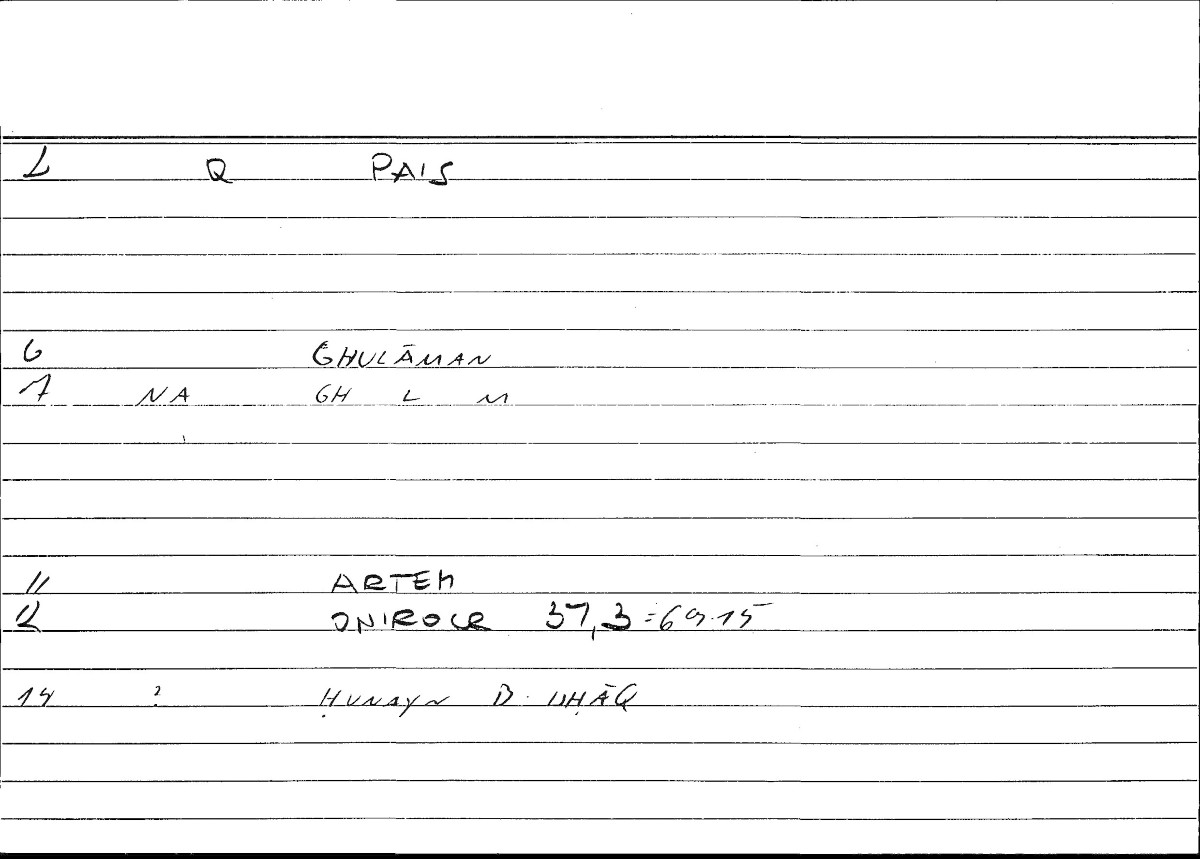 L Q PAIS
6 GHULĀMAN
7 NA GH L M
11 ARTEM
12 ONIROCR 37,3 = 69.15
14 ? ḤUNAYN B. ISḤĀQ